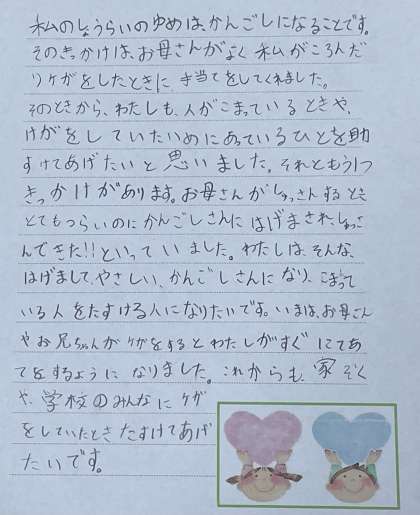 私のしょうらいのゆめは、かんごしになることです。
そのきっかけは、お母さんがよく私がころんだ
りケガをしたときに、手当てをしてくれました。
そのときから、わたしも、人がこまっているときや、
けがをしていたいめにあっているひとを助
すけてあげたいと思いました。それともう1つ
きっかけがあります。お母さんがしゅっさんするとき
とてもつらいのにかんごしさんにはげまされ、しゅっさ
んできた!!といっていました。わたしは、そんな、
はげまして、やさしい、かんごしさんになり、こまって
いる人をたすける人になりたいです。いまは、お母さん
やお兄ちゃんがケガをするとわたしがすぐにてあ
てをするようになりました。これからも、家ぞく
や、学校のみんなにケガ
をしていたときたすけてあげ
たいです。